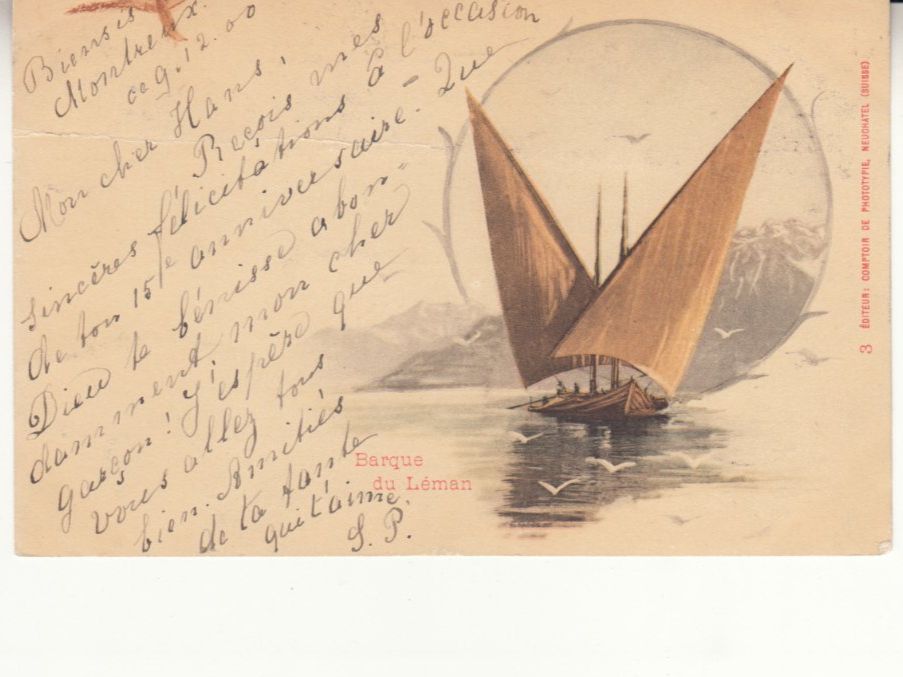 Biensis
Montreux.
ce 9.12.00
Mon cher Hans,
Reçois mes
sincères félicitations à l'occasion
de ton 15e anniversaire. Que
Dieu te bénisse abon-
damment, mon cher
garçon! J'espère que
vous allez tous
bien. Amitiés
de ta tante
qui t'aime.
S. P.
Barque
du Léman
3 ÉDITEUR: COMPTOIR DE PHOTOTYPIE, NEUCHATEL (SUISSE)